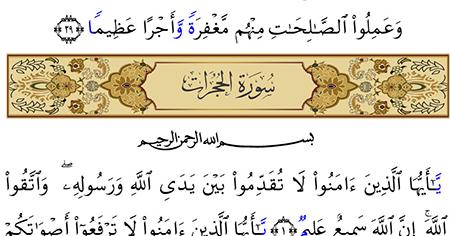 وَعَمِلُوا۟ ٱلصَّـٰلِحَـٰتِ مِنْهُم مَّغْفِرَةً وَأَجْرًا عَظِيمًۢا ﴿٢٩﴾
سُورَةُ الْحُجُرَاتِ
بسم الله الرحمن الرحيم
يَـٰٓأَيُّهَا ٱلَّذِينَ ءَامَنُوا۟ لَا تُقَدِّمُوا۟ بَيْنَ يَدَىِ ٱللَّهِ وَرَسُولِهِۦ ۖ وَٱتَّقُوا۟
ٱللَّهَ ۚ إِنَّ ٱللَّهَ سَمِيعٌ عَلِيمٌ ﴿١﴾ يَـٰٓأَيُّهَا ٱلَّذِينَ ءَامَنُوا۟ لَا تَرْفَعُوٓا۟ أَصْوَٰتَكُمْ